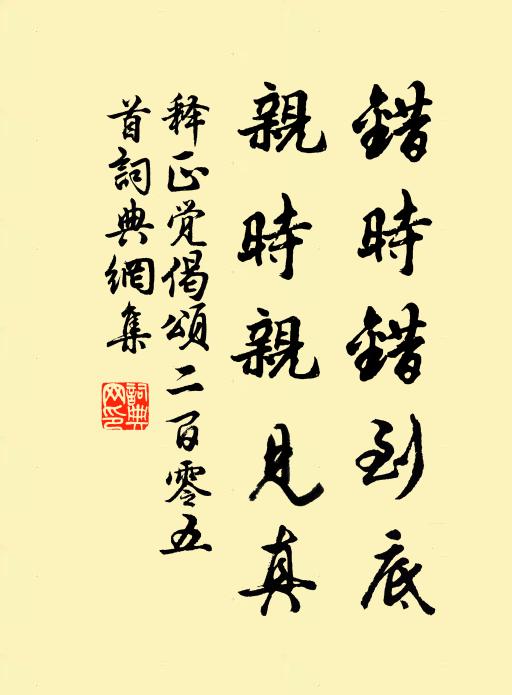 錯時錯到底
親時親見真
释正觉偈頌二百零五
首詞典網集
詞典
网印